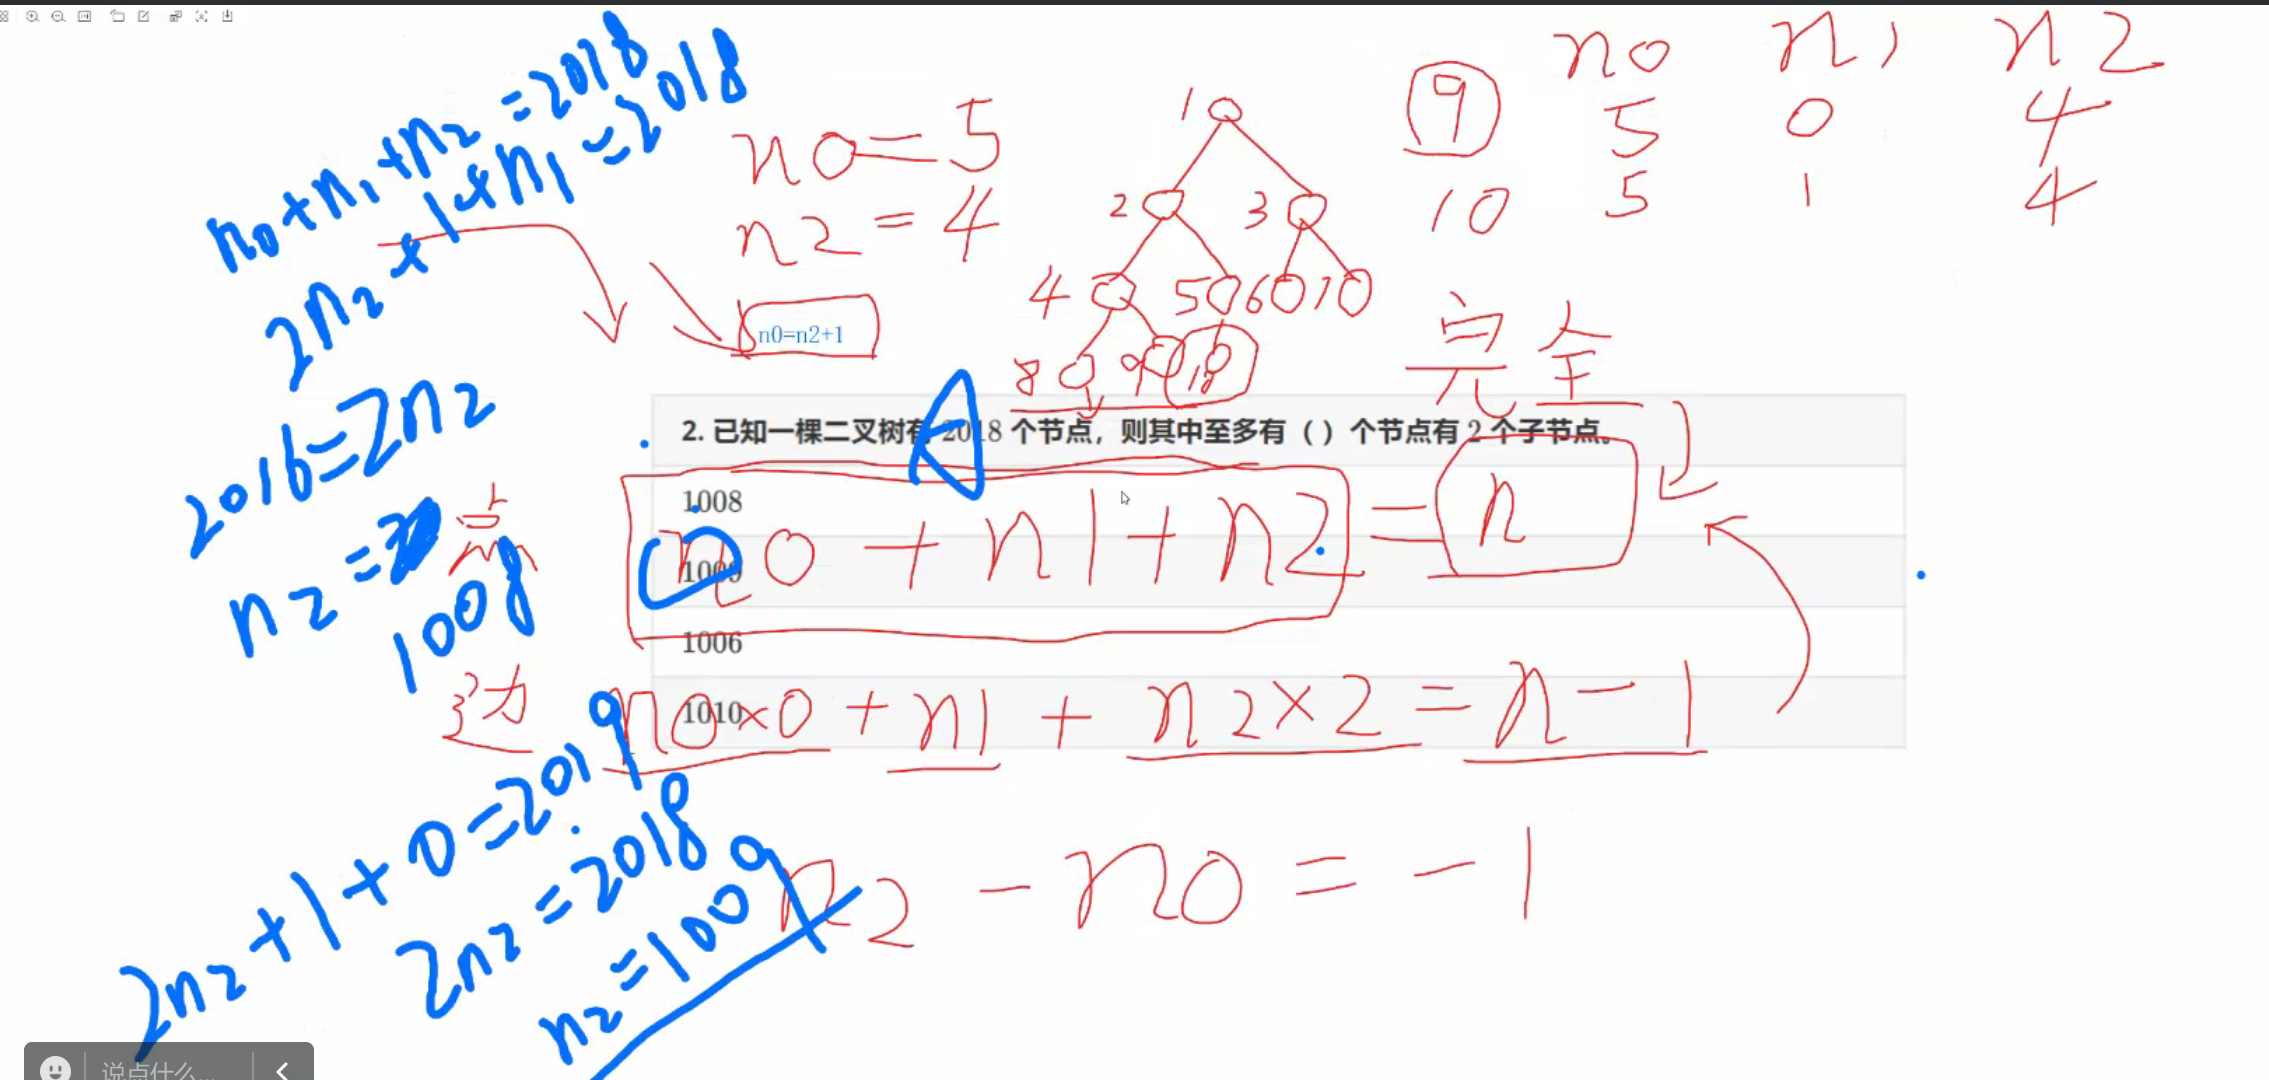 n0 n1 n2
9 5 0 4
10 5 1 4
n0+n1+n2=2018
2n2+1+n1=2018
2016=2n2
n2=
1008
n0=5
n2=4
n0=n2+1
1
2 3
4 5 6 7
8 9 10
完全
2. 已知一棵二叉树有 2018 个节点，则其中至多有（ ）个节点有 2 个子节点。
A
1008
1009
1006
1010
点 n0+n1+n2=n
边 n0×0+n1+n2×2=n-1
n2-n0=-1
2n2+1+0=2019
2n2=2018
n2=1009
说点什么...